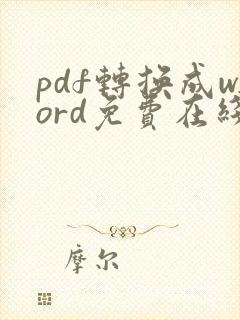 pdf轉換成w
ord免費在綫
摩尔